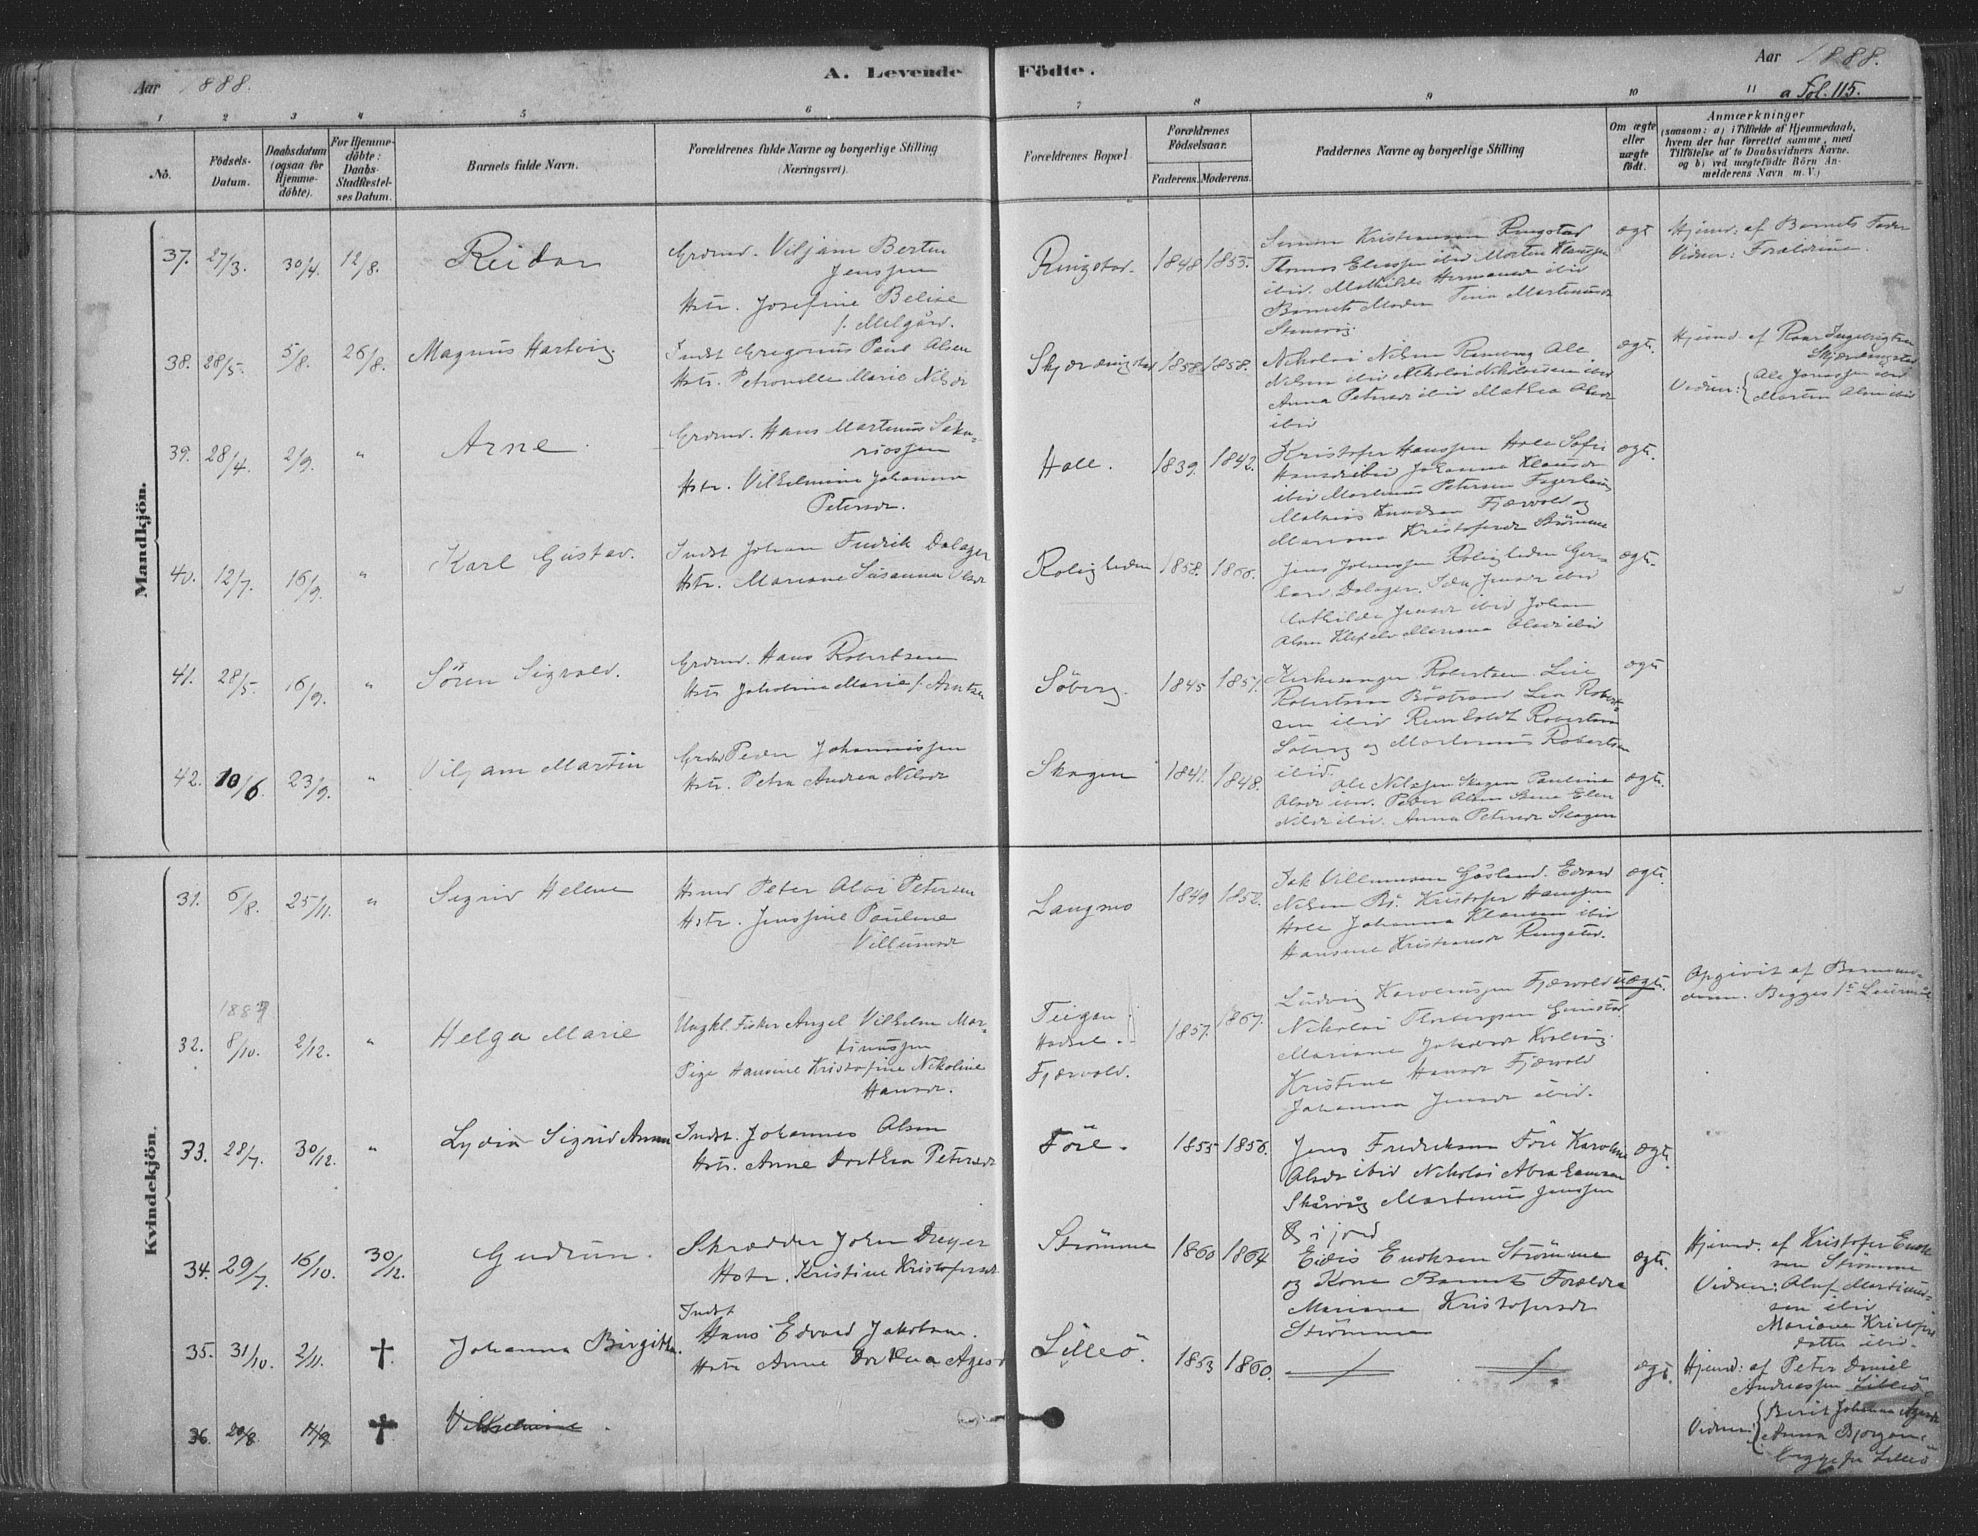 Aar 1888.
A. Levende Födte.
Aar 1888.
a Fol. 115.
1 2 3 4 5 6 7 8 9 10 11
No.
Födsels-
Datum.
Daabsdatum
(ogsaa for
Hjemme-
döbte).
For Hjemme-
döbte:
Daabs-
Stadfæstel-
ses Datum.
Barnets fulde Navn.
Forældrenes fulde Navne og borgerlige Stilling
(Næringsvei).
Forældrenes Bopæl.
Forældrenes
Födselsaar.
Faderens. Moderens.
Faddernes Navne og borgerlige Stilling
Om ægte
eller
uægte
födt.
Anmærkninger
(saasom: a) i Tilfælde af Hjemmedaab,
hvem der har forrettet samme, med
Tilföielse af to Daabsvidners Navne,
og b) ved uægtefödte Börn An-
melderens Navn m. V.)
Mandkjön.
37. 27/3. 30/4. 12/8. Reidar
Grdmd. Viljam Bertin
Jenssen
Hstr. Josefine Belise
f. Melgård.
Ringstad. 1848 1855.
Kristiansen Ringstad
Thomas Eliassen ibid Morten Klausen
ibid. Mathilde Hermansd ibid
Barnets Moder Tina Martinusd
ægt
Hjemd. af Barnets Fader
Vidner: Forældrene.
38. 28/5. 5/8. 26/8. Magnus Hartvig
Indst Gregorius Paul Olsen
Hstr. Petronelle Marie Nilsdr
Skjærdingstad 1858 1858.
Nikolai Nilsen Ole
Nilsen ibid Nikolai Nikolaisen ibid
Anna Petersdr ibid Mathea Olsdr
ibid
ægte.
Hjemd. af Roar Ingebrigtsen
Skjærdingstad
Vidner: Ole Jonassen ibid
Morten Olsen ibid
39. 28/4. 2/9. " Arne
Grdmd. Hans Martinus Saka-
riassen
Hstr. Vilhelmine Johanna
Petersdr.
Holl. 1839. 1842.
Kristofer Hanssen Holl Sofie
Hansdr ibid Johanna Klausdr
ibid Martinus Petersen
Mathias Knudsen Fjærvold og
Mariana Kristofersdr Strömme
ægte.
40. 12/7. 16/9. " Karl Gustav.
Indst Johan Fredrik Dalager
Hstr. Mariane Susanna Olsdr
Roligheden 1858.
Jens Johnssen Roligheden Ger-
hard Dalager. Ida Jensdr ibid
Mathilde Jensdr ibid Johan
Olsen Mariana Olsdr ibid
ægte.
41. 28/5. 16/9. " Sören Sigvald.
Grdmd. Hans Robertsen
Hstr. Jakobina Marie f. Arntsen
Söberg. 1845 1857.
Kirkesanger Robertsen
Robertsen Böstrand Lea Robert-
sen ibid Reinholdt Robertsen
Söberg og Martinus Robertsen
ibid.
ægte
42. 10/6. 23/9. " Viljam Martin
Grdmd Peder Johannessen
Hstr. Petra Andrea Nilsdr
Skagen 1841. 1848.
Ole Nilssen Skagen Pauline
Olsdr ibid. Peter Olsen Elen
Nilsdr ibid. Anna Petersdr Skagen
ægte.
Kvindekjön.
31. 6/8. 25/11. " Sigrid Helene
Hsmd Peter Olai Petersen
Hstr. Jenssine Pauline
Villumsdr
Langmo 1849 1852.
Isak Villumsen Gåsland. Edvard
Nilsen Bö. Kristofer Hanssen
Holl Johanna Klausen ibid
Hansine Kristiansdr Ringstad.
ægte.
1887
32. 8/10. 2/12. " Helga Marie
Ungkl. Fisker Angel Vilhelm Mar-
tinussen
Pige Hansine Kristofine Nikoline
Hansdr.
Teigan
Hadsel.
Fjærvold.
1857. 1867.
Ludvig Karoliussen Fjærvold
Nikolai Thorbergsen
Mariane Jakobsdr
Kristine Hansdr Fjærvold
Johanna Jensdr ibid.
uægte.
Opgivet af Barnemo-
deren. Begges 1ste Leiermål
33. 28/7. 30/12. " Lydia Sigrid Anna
Indst. Johannes Olsen
Hstr. Anne Dorthea Petersdr
Före. 1855 1856.
Jens Fredriksen Före Karoline
Olsdr ibid Nikolai Abrahamsen
Skårvåg Martinus Jenssen
ægte.
34. 29/7. 16/10. 30/12. Gudrun.
Skrædder Johan Dreyer
Hstr. Kristine Kristofersdr
Strömme 1860 1864
Endksen Strömme
og Kone Barnets Forældre
Mariane Kristofersdr
Strömme
ægte.
Hjemd. af Kristofer Endk-
sen Strömme
Vidner: Oluf Martinus-
sen ibid
Mariane Kristofers
datter ibid.
35. 31/10. 2/11. † Johanna Birgitte.
Indst
Hans Edvard Jakobsen.
Hstr Anne Dorthea Agesdr
Lilleö. 1853 1860.
ægte
Hjemd: af Peter Daniel
Andreassen Lilleö
Vidner: Berit Johanna
Anna
begge fra Lilleö
36. 20/8. 11/9 † Vilhelmine.